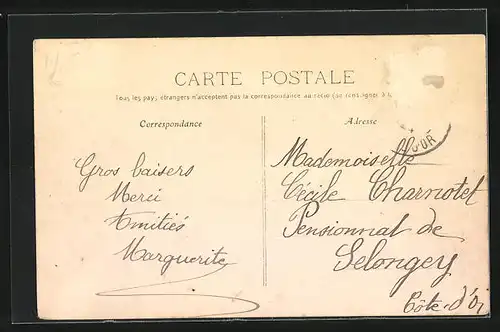 CARTE POSTALE
Tous les pays étrangers n'acceptent pas la correspondance au recto (se renseigner à la
Correspondance
Adresse
Gros baisers
Merci
Amitiés
Marguerite
Mademoiselle
Cécile Charnotet
Pensionnat de
Selongey
Côte-d'Or
D'OR